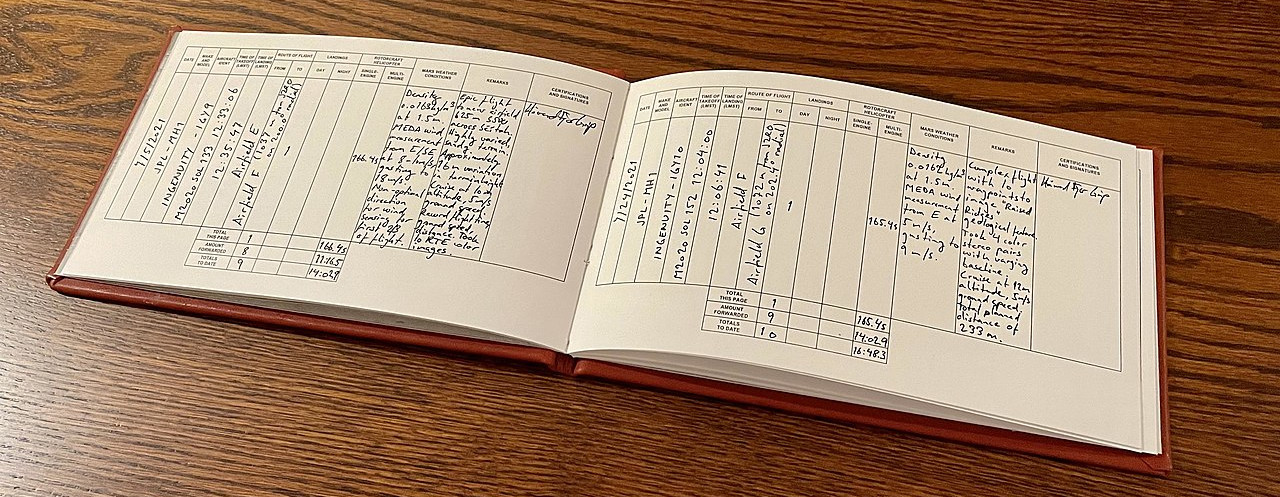 DATE
MAKE AND MODEL
AIRCRAFT IDENT
TIME OF TAKEOFF (LMST)
TIME OF LANDING (LMST)
ROUTE OF FLIGHT
FROM
TO
LANDINGS
DAY
NIGHT
ROTORCRAFT HELICOPTER
SINGLE-ENGINE
MULTI-ENGINE
MARS WEATHER CONDITIONS
REMARKS
CERTIFICATIONS AND SIGNATURES
7/5/2021
JPL-MH1
INGENUITY - IGY9
M2020 SOL 133 12:33:06
12:35:47
Airfield E
Airfield F
1
166.4s
Density
at 1.5m.
MEDA wind
measurement
from ESE
at 8-1m/s,
gusting to
18 m/s.
Non-optimal
direction
for wind
sensing for
of flight.
Epic flight
over airfield
625m SSW
across Séítah.
Highly varied,
Approximately
in terrain height.
Cruise at 10m
altitude, 5m/s
ground speed.
Record flight time,
ground speed,
distance. Took
10 RTE color
images.
TOTAL THIS PAGE
1
166.4s
AMOUNT FORWARDED
8
TOTALS TO DATE
9
14:02.9
DATE
MAKE AND MODEL
AIRCRAFT IDENT
TIME OF TAKEOFF (LMST)
TIME OF LANDING (LMST)
ROUTE OF FLIGHT
FROM
TO
LANDINGS
DAY
NIGHT
ROTORCRAFT HELICOPTER
SINGLE-ENGINE
MULTI-ENGINE
MARS WEATHER CONDITIONS
REMARKS
CERTIFICATIONS AND SIGNATURES
7/24/2021
JPL-MH1
INGENUITY - IGY10
M2020 SOL 152 12:04:00
12:06:41
Airfield F
Airfield G
1
165.4s
Density
at 1.5m.
MEDA wind
measurement
from E at
5 m/s,
gusting to
9 m/s.
Complex flight
with 10
waypoints to
image "Raised
Ridges"
geological feature.
Took 4 color
stereo pairs
with varying
baseline.
Cruise at 12m
altitude, 5m/s
ground speed,
total planned
distance of
233 m.
TOTAL THIS PAGE
1
165.4s
AMOUNT FORWARDED
9
14:02.9
TOTALS TO DATE
10
16:48.3